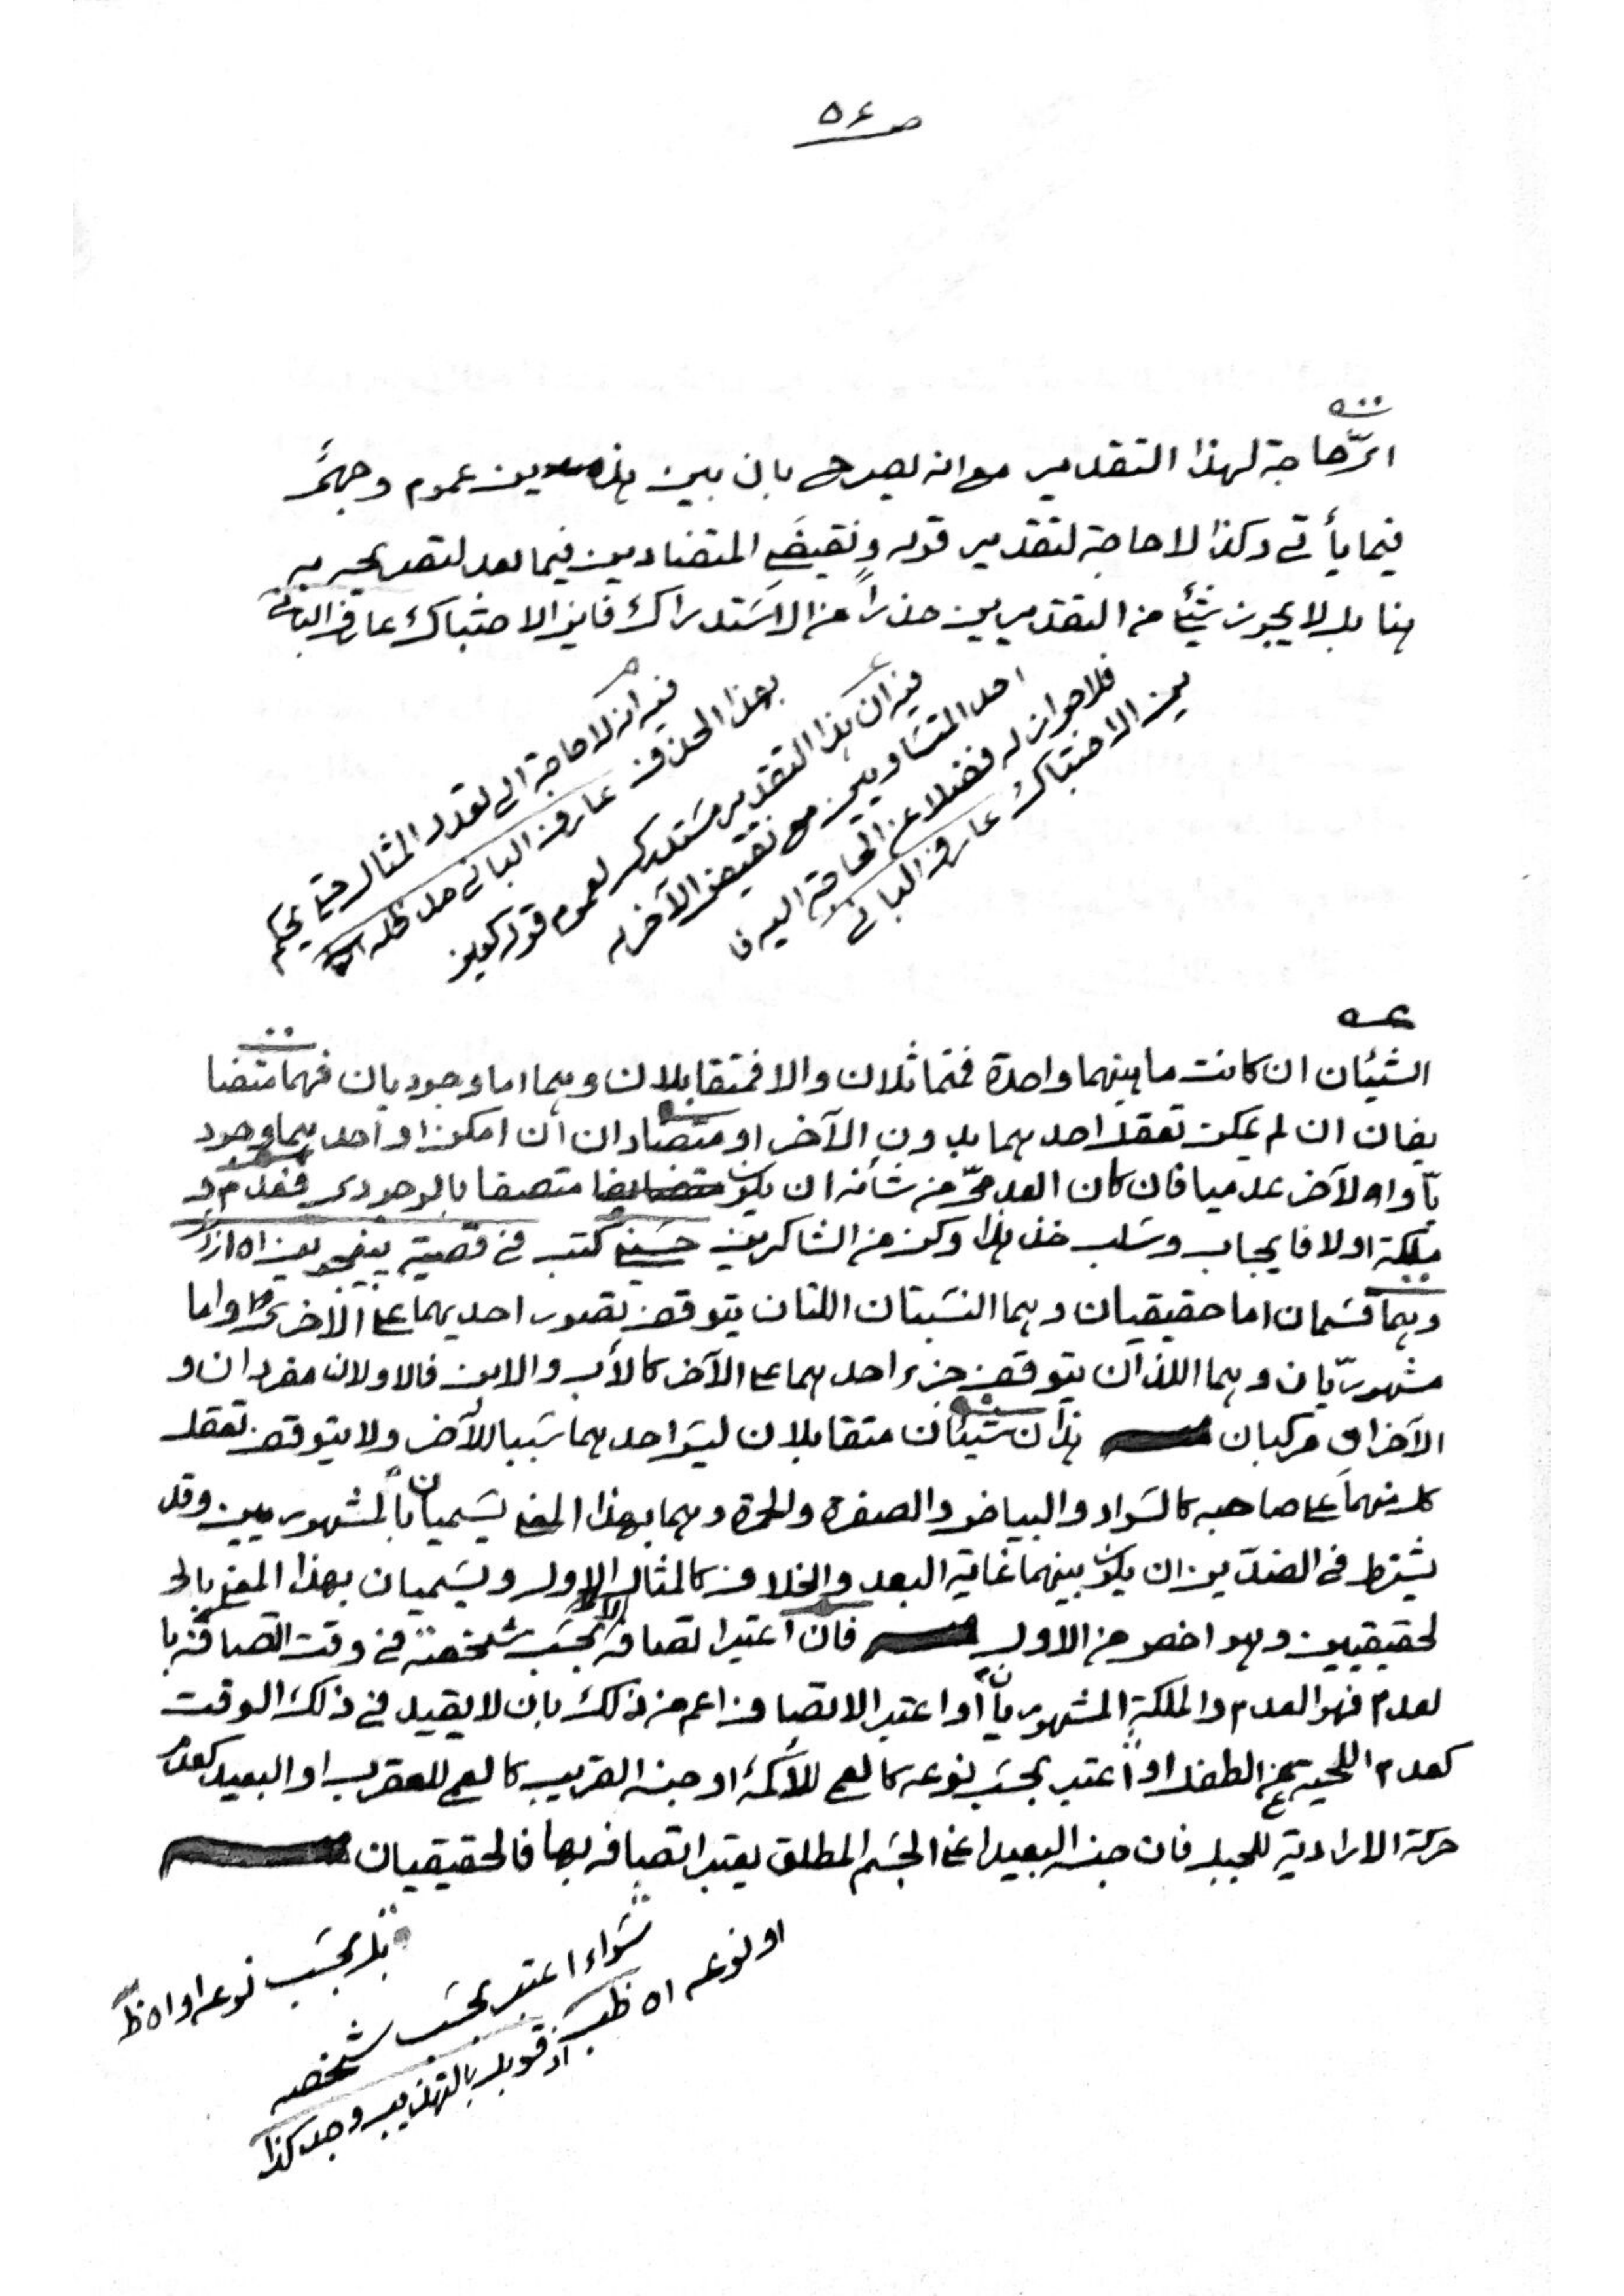 صـ ٥٤
حاجة لهذا التقدير مع انه يصرح بان بين عموم وجهىّ
فيما يأتى وكذا لا حاجة لتقدير قوله ونقيضَى المتضادين فيما بعد لتصريحه به
هنا بل لا يجوز شئ من التقديرين حذراً من الاستدراك فاين الاحتباك عارف البانى
فيه انه لا حاجة الى تعدد المثال حتى يحكم
بهذا الحذف عارف البانى مد ظله
فيه ان هذا التقدير مستدرك لعموم قوله كعين
احد المتساويين مع نقيض الآخر له
فلا جواز له فضلا عن الحاجة اليه ف
ين الاحتباك عارف البانى
الشيئان ان كانت ماهيتهما واحدة فمتماثلان والا فمتقابلان وهما اما وجوديان فهما متضا
يفان ان لم يمكن تعقل احدهما بدون الآخر او متضادان ان امكن او احدهما وجود
يّا والآخر عدميا فان كان العدمىّ من شأنه ان يكون متصفا بالوجودى فعدم و
ملكة اولا فايجاب وسلب خذ هذا وكن من الشاكرين حسين كتب فى قصبة
وهما قسمان اما حقيقيان وهما النسبتان اللتان يتوقف تصور احديهما على الاخرى واما
مشهوريّان وهما اللذان يتوقف جزء احدهما على الآخر كالأب والابن فالاولان مفردان و
الآخران مركبان هذان شيئان متقابلان ليس احدهما سببا للآخر ولا يتوقف تعقل
كل منهما على صاحبه كالسواد والبياض والصفرة والحمرة وهما بهذا المعنى يسميان بالمشهوريين وقد
يشترط فى الضدين ان يكون بينهما غاية البعد والخلاف كالمثال الاول ويسميان بهذا المعنى با
لحقيقيين وهو اخص من الاول فان اعتبر اتصافه بحسب شخصه فى وقت اتصافه با
لعدم فهو العدم والملكة المشهوريان او اعتبر الاتصاف اعم من ذلك بان لا يقيد فى ذلك الوقت
كعدم اللحية عن الطفل او اعتبر بحسب نوعه كالعمى للأكمه او جنسه القريب كالعمى للعقرب او البعيد كعدم
حركة الارادية للجبل فان جنسه البعيد اعنى الجسم المطلق يعتبر اتصافه بها فالحقيقيان
بل بحسب نوعه او اه ظ
سواء اعتبر بحسب شخصه
او نوعه اه ظ
قوبل بالتهذيب وجد كذا